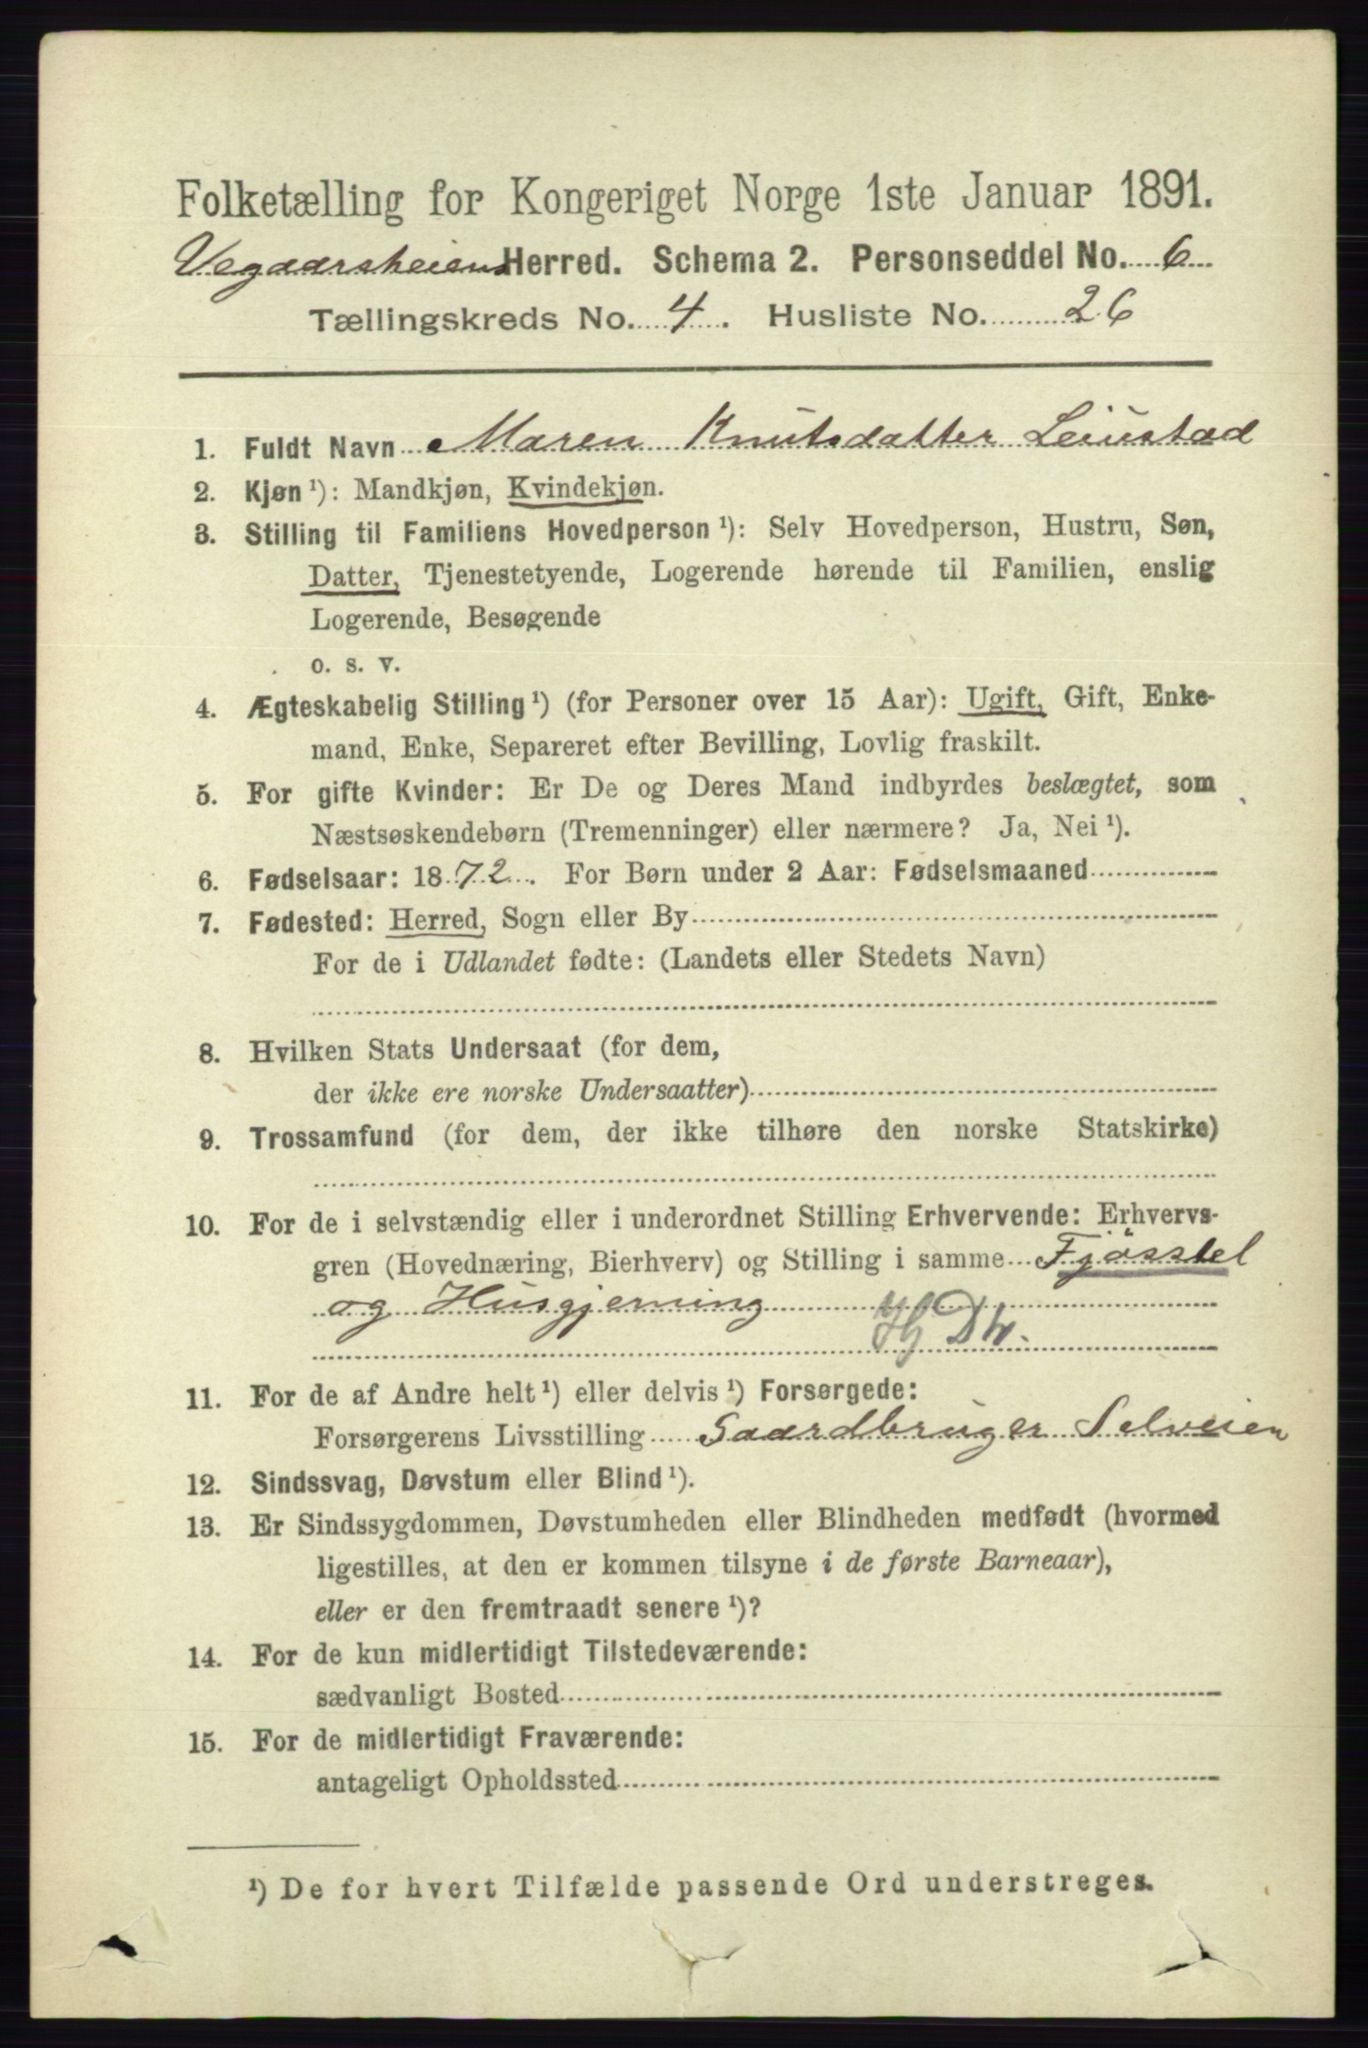 Folketælling for Kongeriget Norge 1ste Januar 1891.
Vegaarsheiens Herred. Schema 2. Personseddel No. 6
Tællingskreds No. 4. Husliste No. 26
1. Fuldt Navn Maren Knutsdatter Leiustad
2. Kjøn ¹): Mandkjøn, Kvindekjøn.
3. Stilling til Familiens Hovedperson ¹): Selv Hovedperson, Hustru, Søn,
Datter, Tjenestetyende, Logerende hørende til Familien, enslig
Logerende, Besøgende
o. s. v.
4. Ægteskabelig Stilling ¹) (for Personer over 15 Aar): Ugift, Gift, Enke-
mand, Enke, Separeret efter Bevilling, Lovlig fraskilt.
5. For gifte Kvinder: Er De og Deres Mand indbyrdes beslægtet, som
Næstsøskendebørn (Tremenninger) eller nærmere? Ja, Nei ¹).
6. Fødselsaar: 1872. For Børn under 2 Aar: Fødselsmaaned
7. Fødested: Herred, Sogn eller By
For de i Udlandet fødte: (Landets eller Stedets Navn)
8. Hvilken Stats Undersaat (for dem,
der ikke ere norske Undersaatter)
9. Trossamfund (for dem, der ikke tilhøre den norske Statskirke)
10. For de i selvstændig eller i underordnet Stilling Erhvervende: Erhvervs-
gren (Hovednæring, Bierhverv) og Stilling i samme Fjøsstel
og Husgjerning
11. For de af Andre helt ¹) eller delvis ¹) Forsørgede:
Forsørgerens Livsstilling Gaardbruger Selveien
12. Sindssvag, Døvstum eller Blind ¹).
13. Er Sindssygdommen, Døvstumheden eller Blindheden medfødt (hvormed
ligestilles, at den er kommen tilsyne i de første Barneaar),
eller er den fremtraadt senere ¹)?
14. For de kun midlertidigt Tilstedeværende:
sædvanligt Bosted
15. For de midlertidigt Fraværende:
antageligt Opholdssted
¹) De for hvert Tilfælde passende Ord understreges.